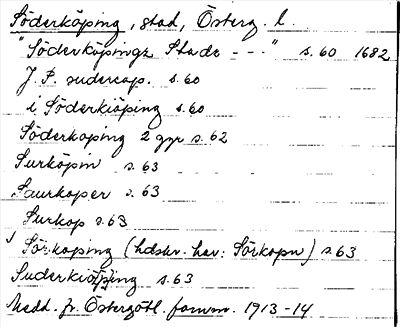 Söderköping, stad, Österg. l.
"Söderköpingz Stadz - - -" s. 60 1682
J. P. sudercop. s. 60
i Söderkiöping s. 60
Söderkoping 2 ggr s. 62
Surköpin s. 63
Saurkoper s. 63
Surkop s. 63
Sörkoping (hdskr. har: Sörkopn) s. 63
Suderkiöping s. 63
Medd. fr. Östergötl. fornm. 1913-14